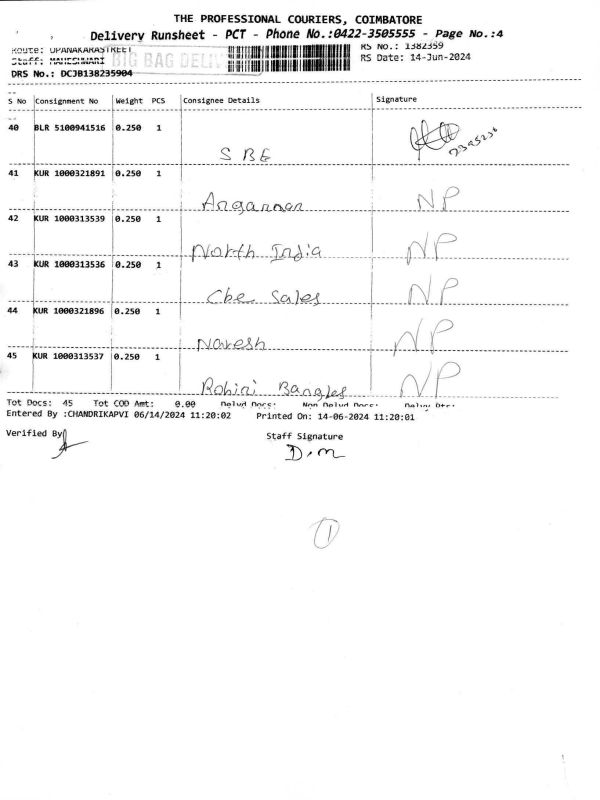 THE PROFESSIONAL COURIERS, COIMBATORE
Delivery Runsheet - PCT - Phone No.:0422-3505555 - Page No.:4
Route: UPANAKARASTREET
RS No.: 1382359
Staff: MAHESHWARI BIG BAG DELIV
RS Date: 14-Jun-2024
DRS No.: DCJB138235904
S No Consignment No Weight PCS Consignee Details Signature
40 BLR 5100941516 0.250 1
SBE
41 KUR 1000321891 0.250 1
Angannan NP
42 KUR 1000313539 0.250 1
North India NP
43 KUR 1000313536 0.250 1
Cbe Sales NP
44 KUR 1000321896 0.250 1
Naresh NP
45 KUR 1000313537 0.250 1
Rohini Bangles NP
Tot Docs: 45 Tot COD Amt: 0.00 Delvd Docs: Non Delvd Docs:
Entered By :CHANDRIKAPVI 06/14/2024 11:20:02 Printed On: 14-06-2024 11:20:01
Verified By
Staff Signature
D.M
1